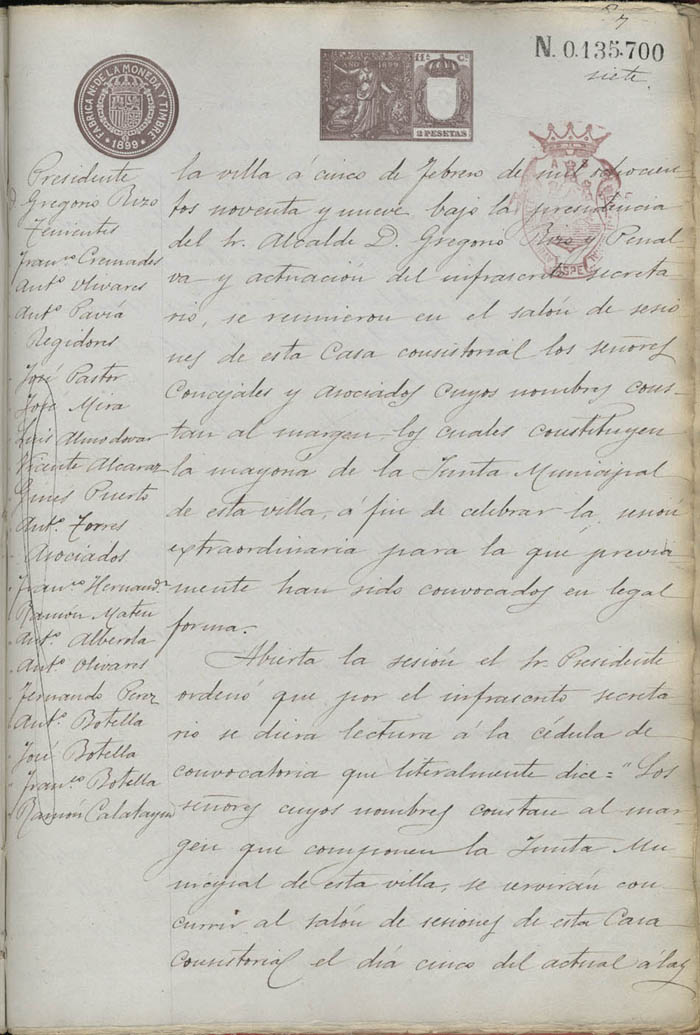 7
N. 0.135.700
siete.
FABRICA NAL DE LA MONEDA Y TIMBRE
1899
AÑO 1899
2 PESETAS
Presidente
D Gregorio Rizo
Tenientes
Franco Cremades
Anto Olivares
Anto Pavía
Regidores
José Pastor
José Mira
Luis Almodovar
Vicente Alcaraz
Ginés Puerto
Anto Torres
Asociados
Franco Hernandz
Ramón Mateu
Anto Alberola
Anto Olivares
Fernando Perez
Anto Botella
José Botella
Franco Botella
Ramón Calatayud
la villa á cinco de Febrero de mil ochocien
tos noventa y nueve bajo la presidencia
del Sr. Alcalde D. Gregorio Rizo y Penal
va y actuación del infrascrito secreta
rio, se reunieron en el salón de sesio
nes de esta Casa consistorial los señores
Concejales y asociados cuyos nombres cons-
tan al margen, los cuales constituyen
la mayoría de la Junta Municipal
de esta villa, á fin de celebrar la sesión
extraordinaria para la que previa
mente han sido convocados en legal
forma.
Abierta la sesión el Sr. Presidente
ordenó que por el infrascrito secreta
rio se diera lectura á la cédula de
convocatoria que literalmente dice = "Los
señores cuyos nombres constan al mar-
gen que componen la Junta Mu
nicipal de esta villa, se servirán con
currir al salón de sesiones de esta Casa
consistorial el día cinco del actual á las